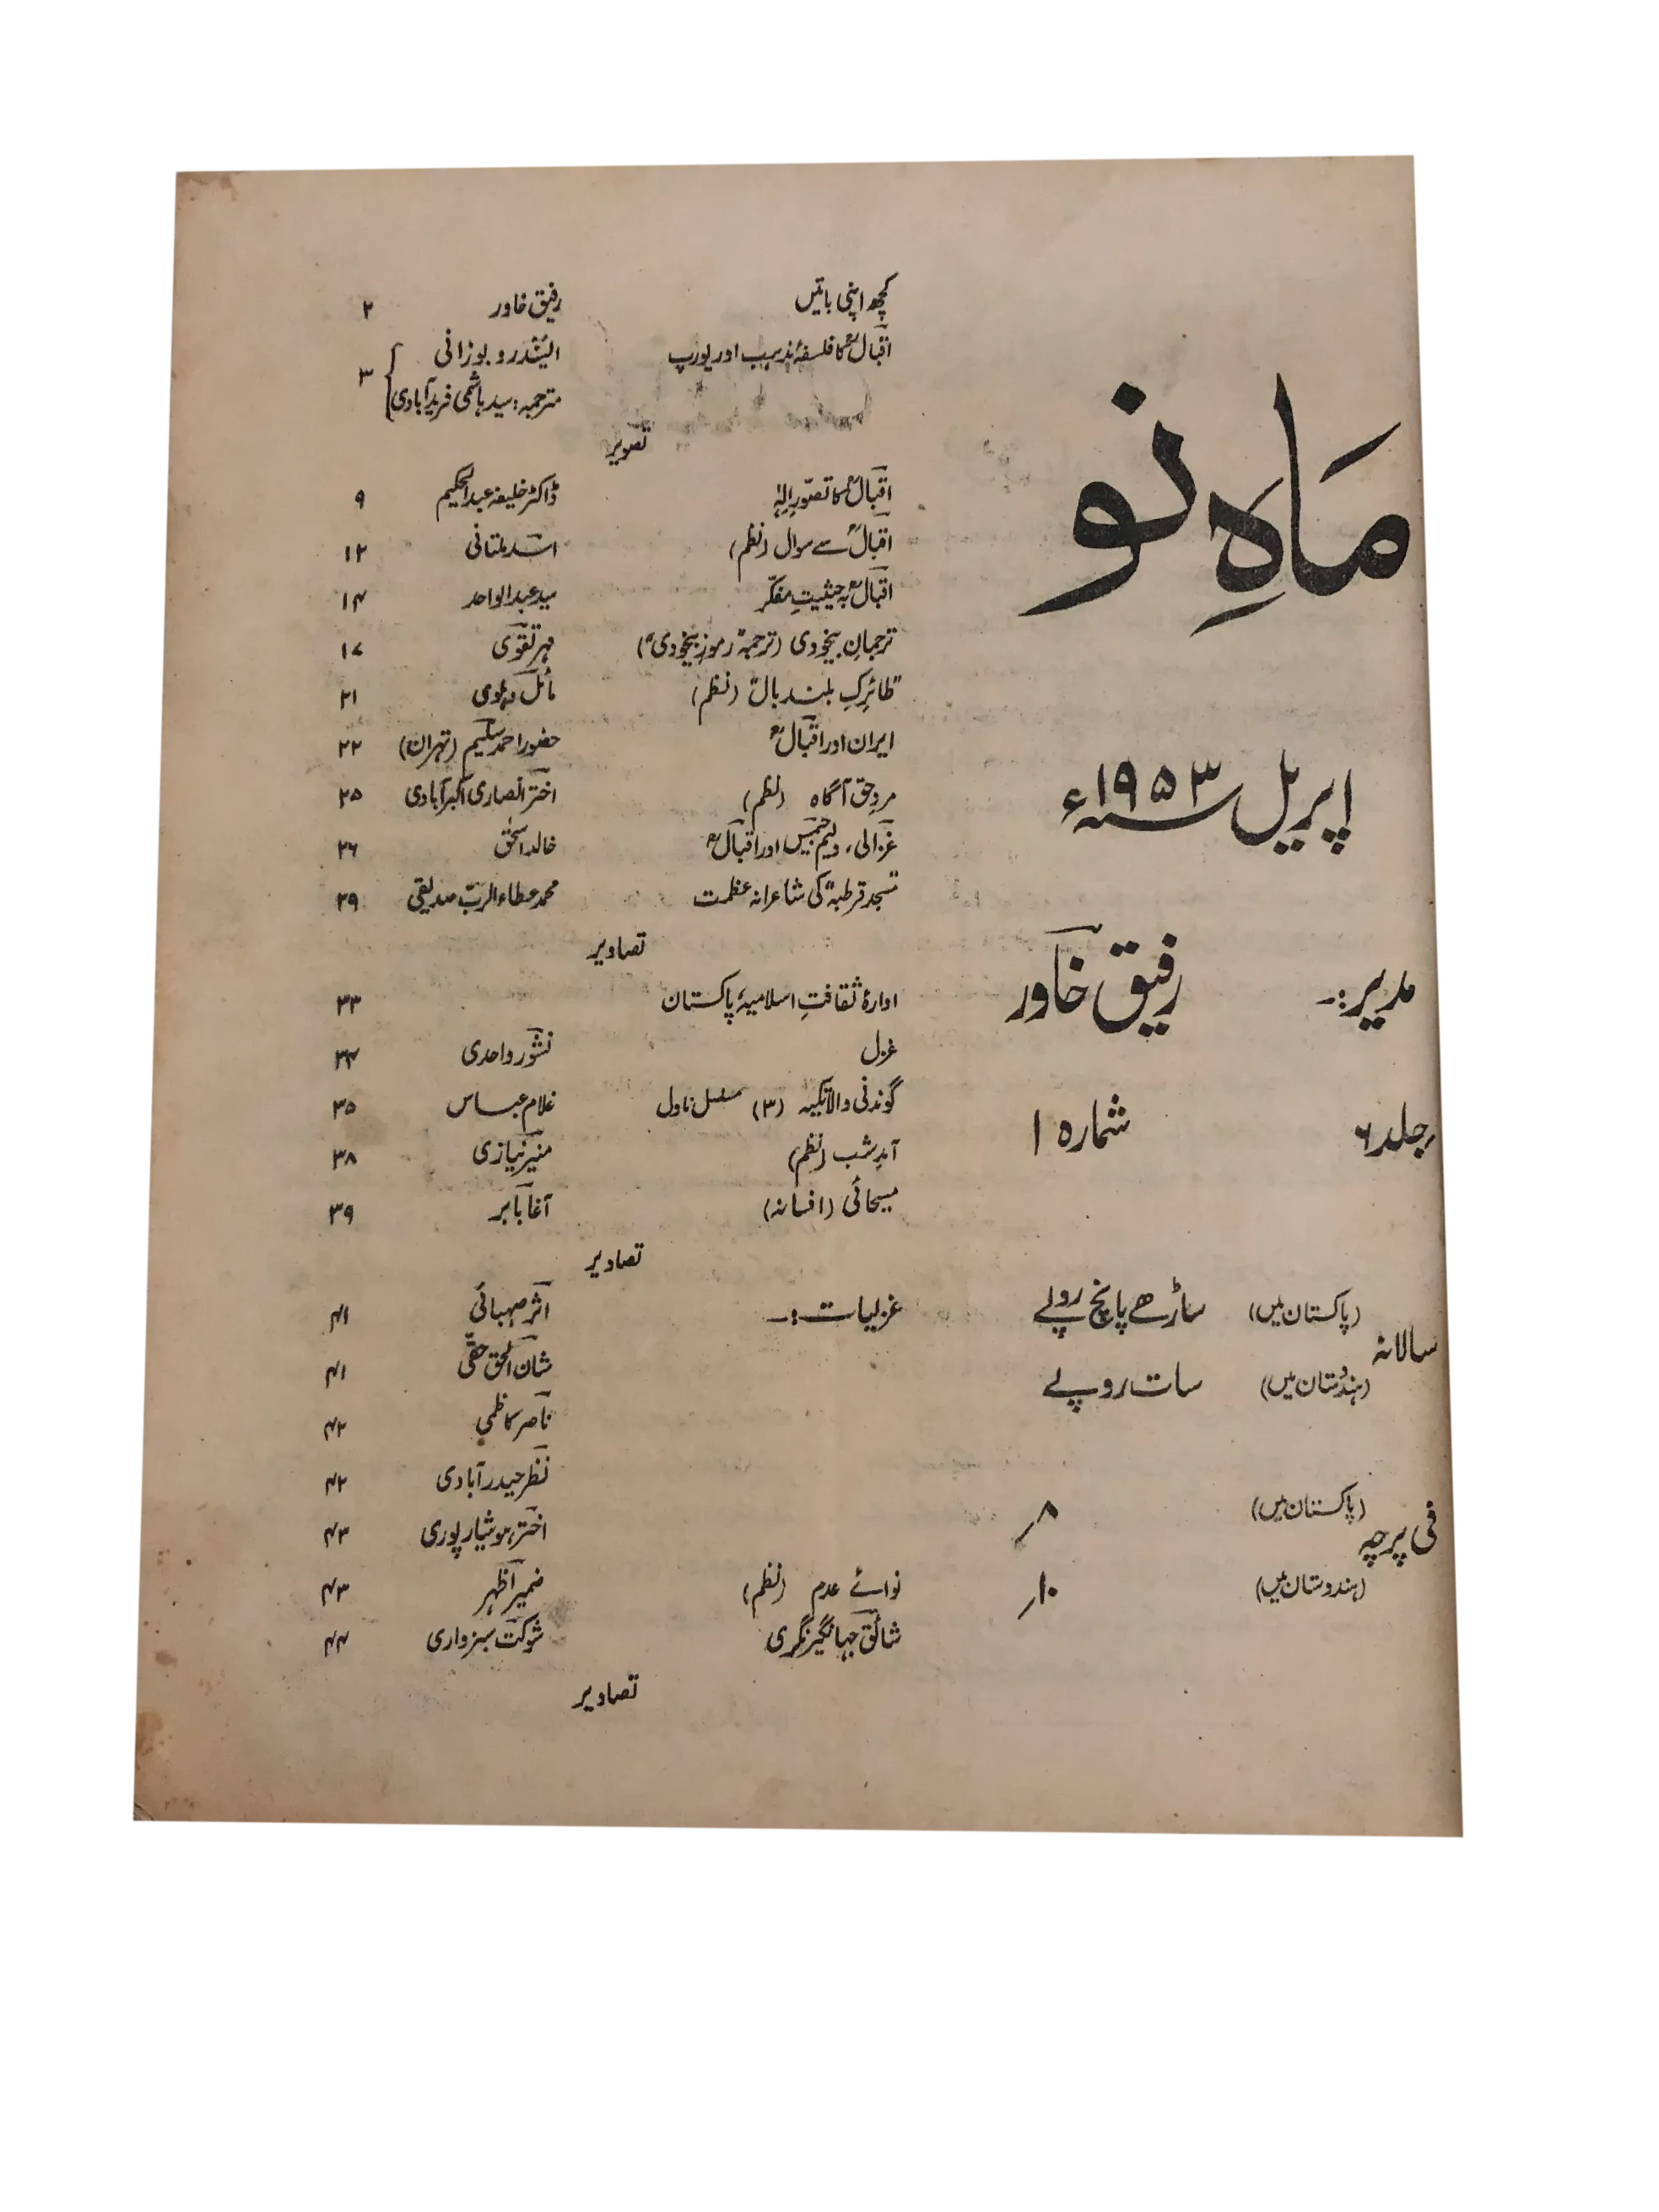 ماہِ نو
اپریل ۱۹۵۳ء
مدیر:۔ رفیق خاور
جلد ۶ شمارہ ۱
سالانہ
(پاکستان میں) ساڑھے پانچ روپے
(ہندُستان میں) سات روپے
فی پرچہ
(پاکستان میں) ۸؍
(ہندوستان میں) ۱۰؍
کچھ اپنی باتیں رفیق خاور ۲
اقبالؒ کا فلسفۂ مذہب اور یورپ الیسّندرو بوزانی ۳
مترجمہ: سید ہاشمی فریدآبادی
تصویر
اقبالؒ کا تصوّرِ اِلٰہ ڈاکٹر خلیفہ عبدالحکیم ۹
اقبالؒ سے سوال (نظم) اسد ملتانی ۱۲
اقبالؒ بہ حیثیتِ مفکّر سید عبدالواحد ۱۴
ترجمانِ بیخودی (ترجمہ "رموزِ بیخودی") مہر تقوی ۱۷
"طائرکِ بلند بال" (نظم) مائل دہلوی ۲۱
ایران اور اقبالؒ حضور احمد سلیم (تہران) ۲۲
مردِ حق آگاہ (نظم) اختر انصاری اکبرآبادی ۲۵
غزالی، ولیم جیمس اور اقبالؒ خالد اسحٰق ۲۶
"مسجد قرطبہ" کی شاعرانہ عظمت محمد عطاء الربّ صدیقی ۲۹
تصاویر
ادارۂ ثقافتِ اسلامیۂ پاکستان ۳۳
غزل نشور واحدی ۳۴
گوندنی والا تکیہ (۳) مسلسل ناول غلام عباس ۳۵
آمدِ شب (نظم) منیر نیازی ۳۸
مسیحائی (افسانہ) آغا بابر ۳۹
تصاویر
غزلیات:۔ اثر صہبائی ۴۱
شان الحق حقّی ۴۱
ناصر کاظمی ۴۲
نظر حیدرآبادی ۴۲
اختر ہوشیارپوری ۴۳
نوائے عدم (نظم) ضمیر اظہر ۴۳
شائق جہانگیرنگری شوکت سبزواری ۴۴
تصاویر